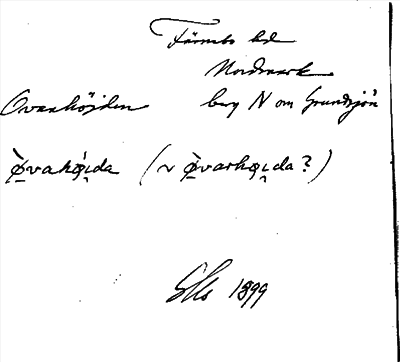 Färnebo hd
Nordmark
Overhöjden berg N om Grundsjön
ø̀vahǫ̷́i̯da (v ø̀varhǫ̷i̯da?)
1899